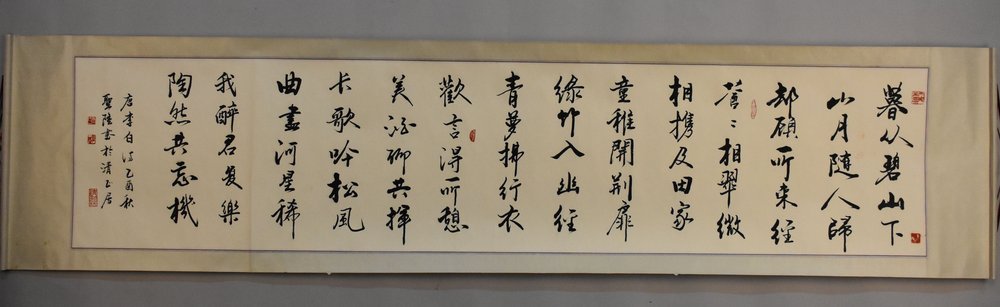 暮从碧山下
山月随人歸
却顧所来徑
蒼〻横翠微
相携及田家
童稚開荆扉
綠竹入幽徑
青萝拂行衣
歡言得所憩
美酒聊共揮
长歌吟松風
曲盡河星稀
我醉君复樂
陶然共忘機
唐李白诗乙酉秋
书於清玉居